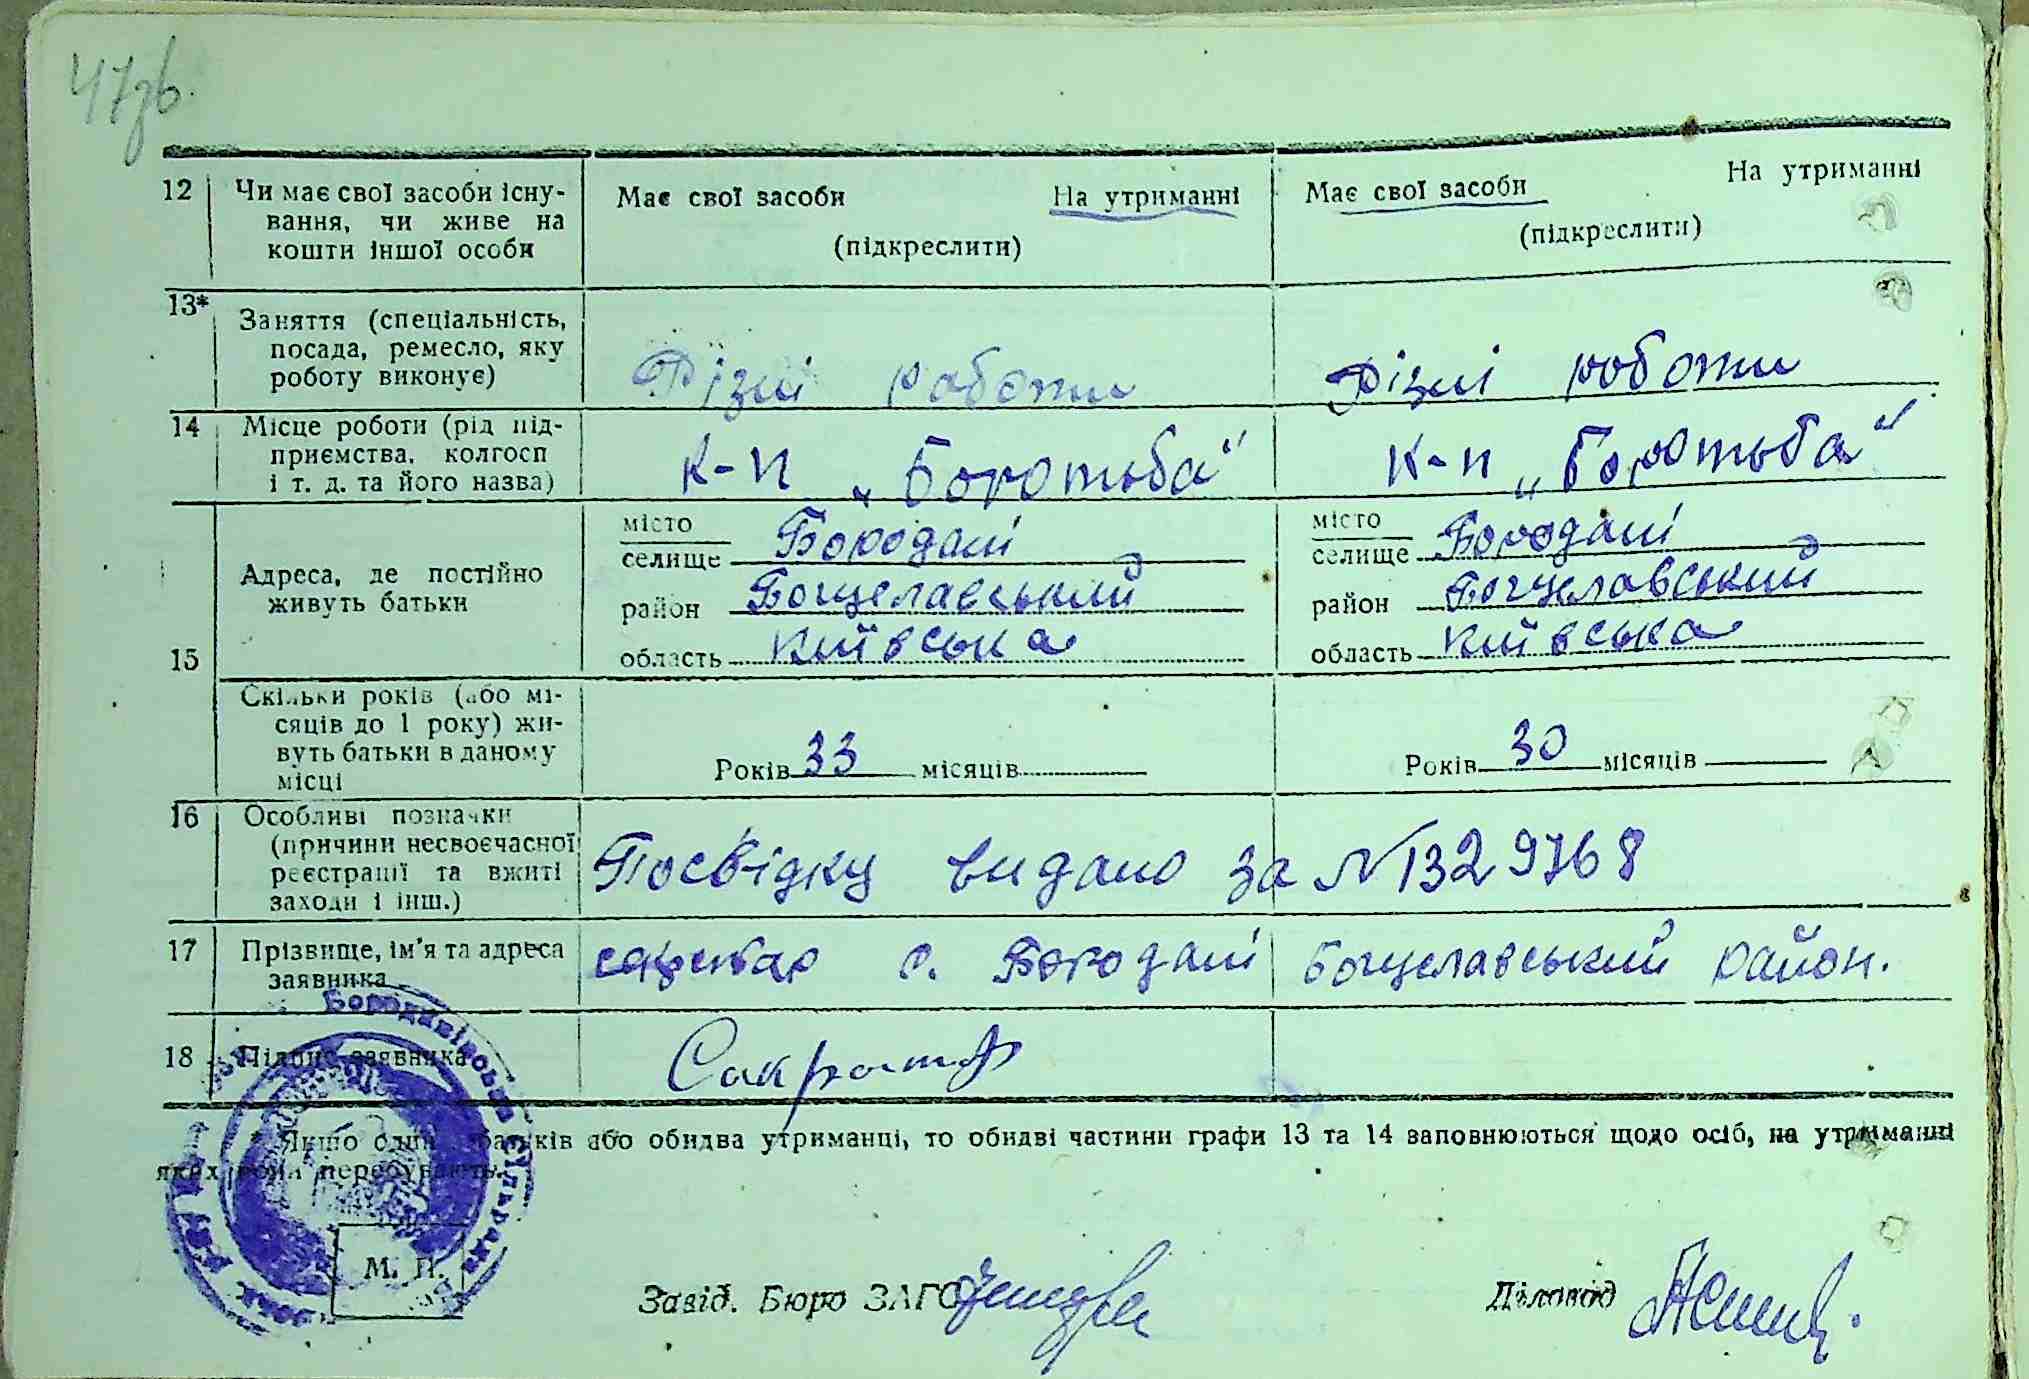 47зв.
12 Чи має свої засоби існу-
вання, чи живе на
кошти іншої особи
Має свої засоби На утриманні
(підкреслити)
Має свої засоби На утриманні
(підкреслити)
13* Заняття (спеціальність,
посада, ремесло, яку
роботу виконує)
Різні роботи
Різні роботи
14 Місце роботи (рід під-
приємства, колгосп
і т. д. та його назва)
К-п „Боротьба"
К-п „Боротьба"
15 Адреса, де постійно
живуть батьки
місто
селище Бородані
район Богуславський
область Київська
місто
селище Бородані
район Богуславський
область Київська
Скільки років (або мі-
сяців до 1 року) жи-
вуть батьки в даному
місці
Років 33 місяців
Років 30 місяців
16 Особливі позначки
(причини несвоєчасної
реєстрації та вжиті
заходи і інш.)
Посвідку видано за №1329768
17 Прізвище, ім'я та адреса
заявника
с. Бородані Богуславський район.
18 Підпис заявника
* Якщо один з батьків або обидва утриманці, то обидві частини графи 13 та 14 заповнюються щодо осіб, на утриманні
яких вони перебувають.
Бороданівська сільрада
М. П.
Завід. Бюро ЗАГС
Діловод